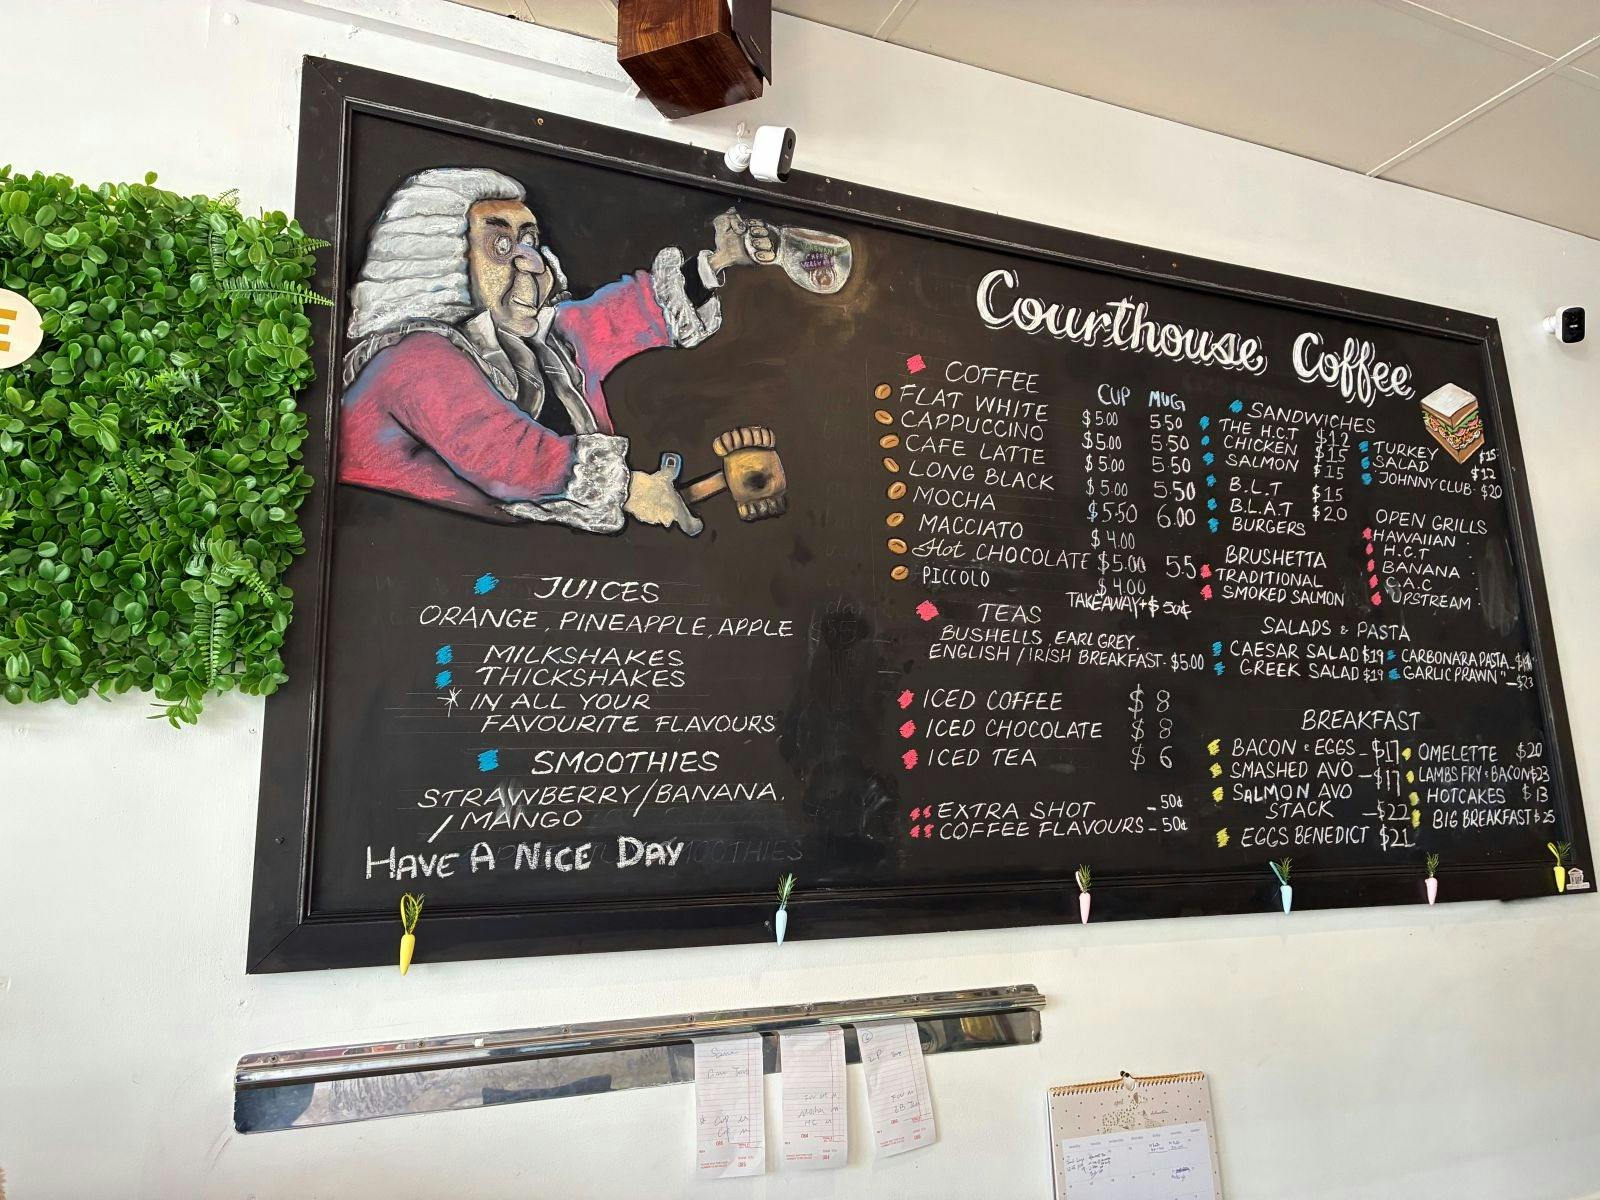 E
Courthouse Coffee
COFFEE CUP MUG
FLAT WHITE $5.00 5.50
CAPPUCCINO $5.00 5.50
CAFE LATTE $5.00 5.50
LONG BLACK $5.00 5.50
MOCHA $5.50 6.00
MACCIATO $4.00
Hot CHOCOLATE $5.00 5.5
PICCOLO $4.00
TAKEAWAY + $ 50¢
TEAS
BUSHELLS, EARL GREY.
ENGLISH / IRISH BREAKFAST. $5.00
ICED COFFEE $ 8
ICED CHOCOLATE $ 8
ICED TEA $ 6
EXTRA SHOT - 50¢
COFFEE FLAVOURS - 50¢
SANDWICHES
THE H.C.T $12
CHICKEN $15
SALMON $15
B.L.T $15
B.L.A.T $20
BURGERS
TURKEY $15
SALAD $12
JOHNNY CLUB $20
BRUSHETTA
TRADITIONAL
SMOKED SALMON
OPEN GRILLS
HAWAIIAN
H.C.T
BANANA
C.A.C
UPSTREAM
SALADS & PASTA
CAESAR SALAD $19
GREEK SALAD $19
CARBONARA PASTA
GARLIC PRAWN " - $23
BREAKFAST
BACON & EGGS - $17
SMASHED AVO - $17
SALMON AVO
STACK - $22
EGGS BENEDICT $21
OMELETTE $20
LAMBS FRY & BACON $23
HOTCAKES $13
BIG BREAKFAST $25
JUICES
ORANGE, PINEAPPLE, APPLE
MILKSHAKES
THICKSHAKES
* IN ALL YOUR
FAVOURITE FLAVOURS
SMOOTHIES
STRAWBERRY / BANANA.
/ MANGO
HAVE A NICE DAY